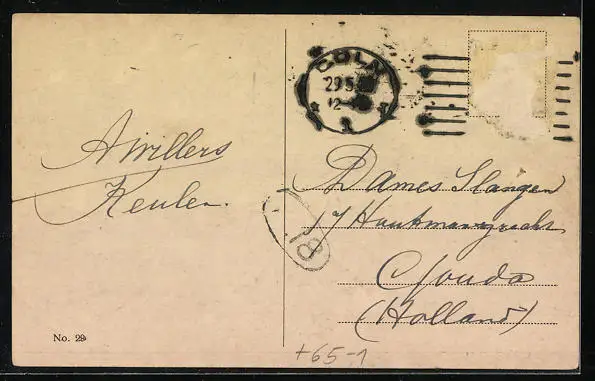 CÖLN
29.5.
12-
1
A Willers
Keulen.
Dames Slangen
17 Houtmansgracht
Gouda
(Holland)
18
No. 29
+65-1